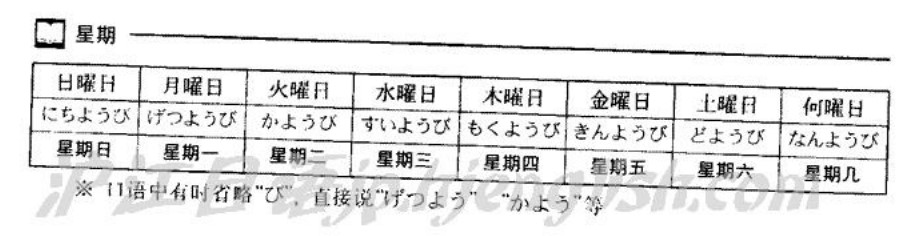 星期
日曜日 月曜日 火曜日 水曜日 木曜日 金曜日 土曜日 何曜日
にちようび げつようび かようび すいようび もくようび きんようび どようび なんようび
星期日 星期一 星期二 星期三 星期四 星期五 星期六 星期几
※ 口语中有时省略“び”，直接说“げつよう” “かよう”等
沪江日语jp.hjenglish.com